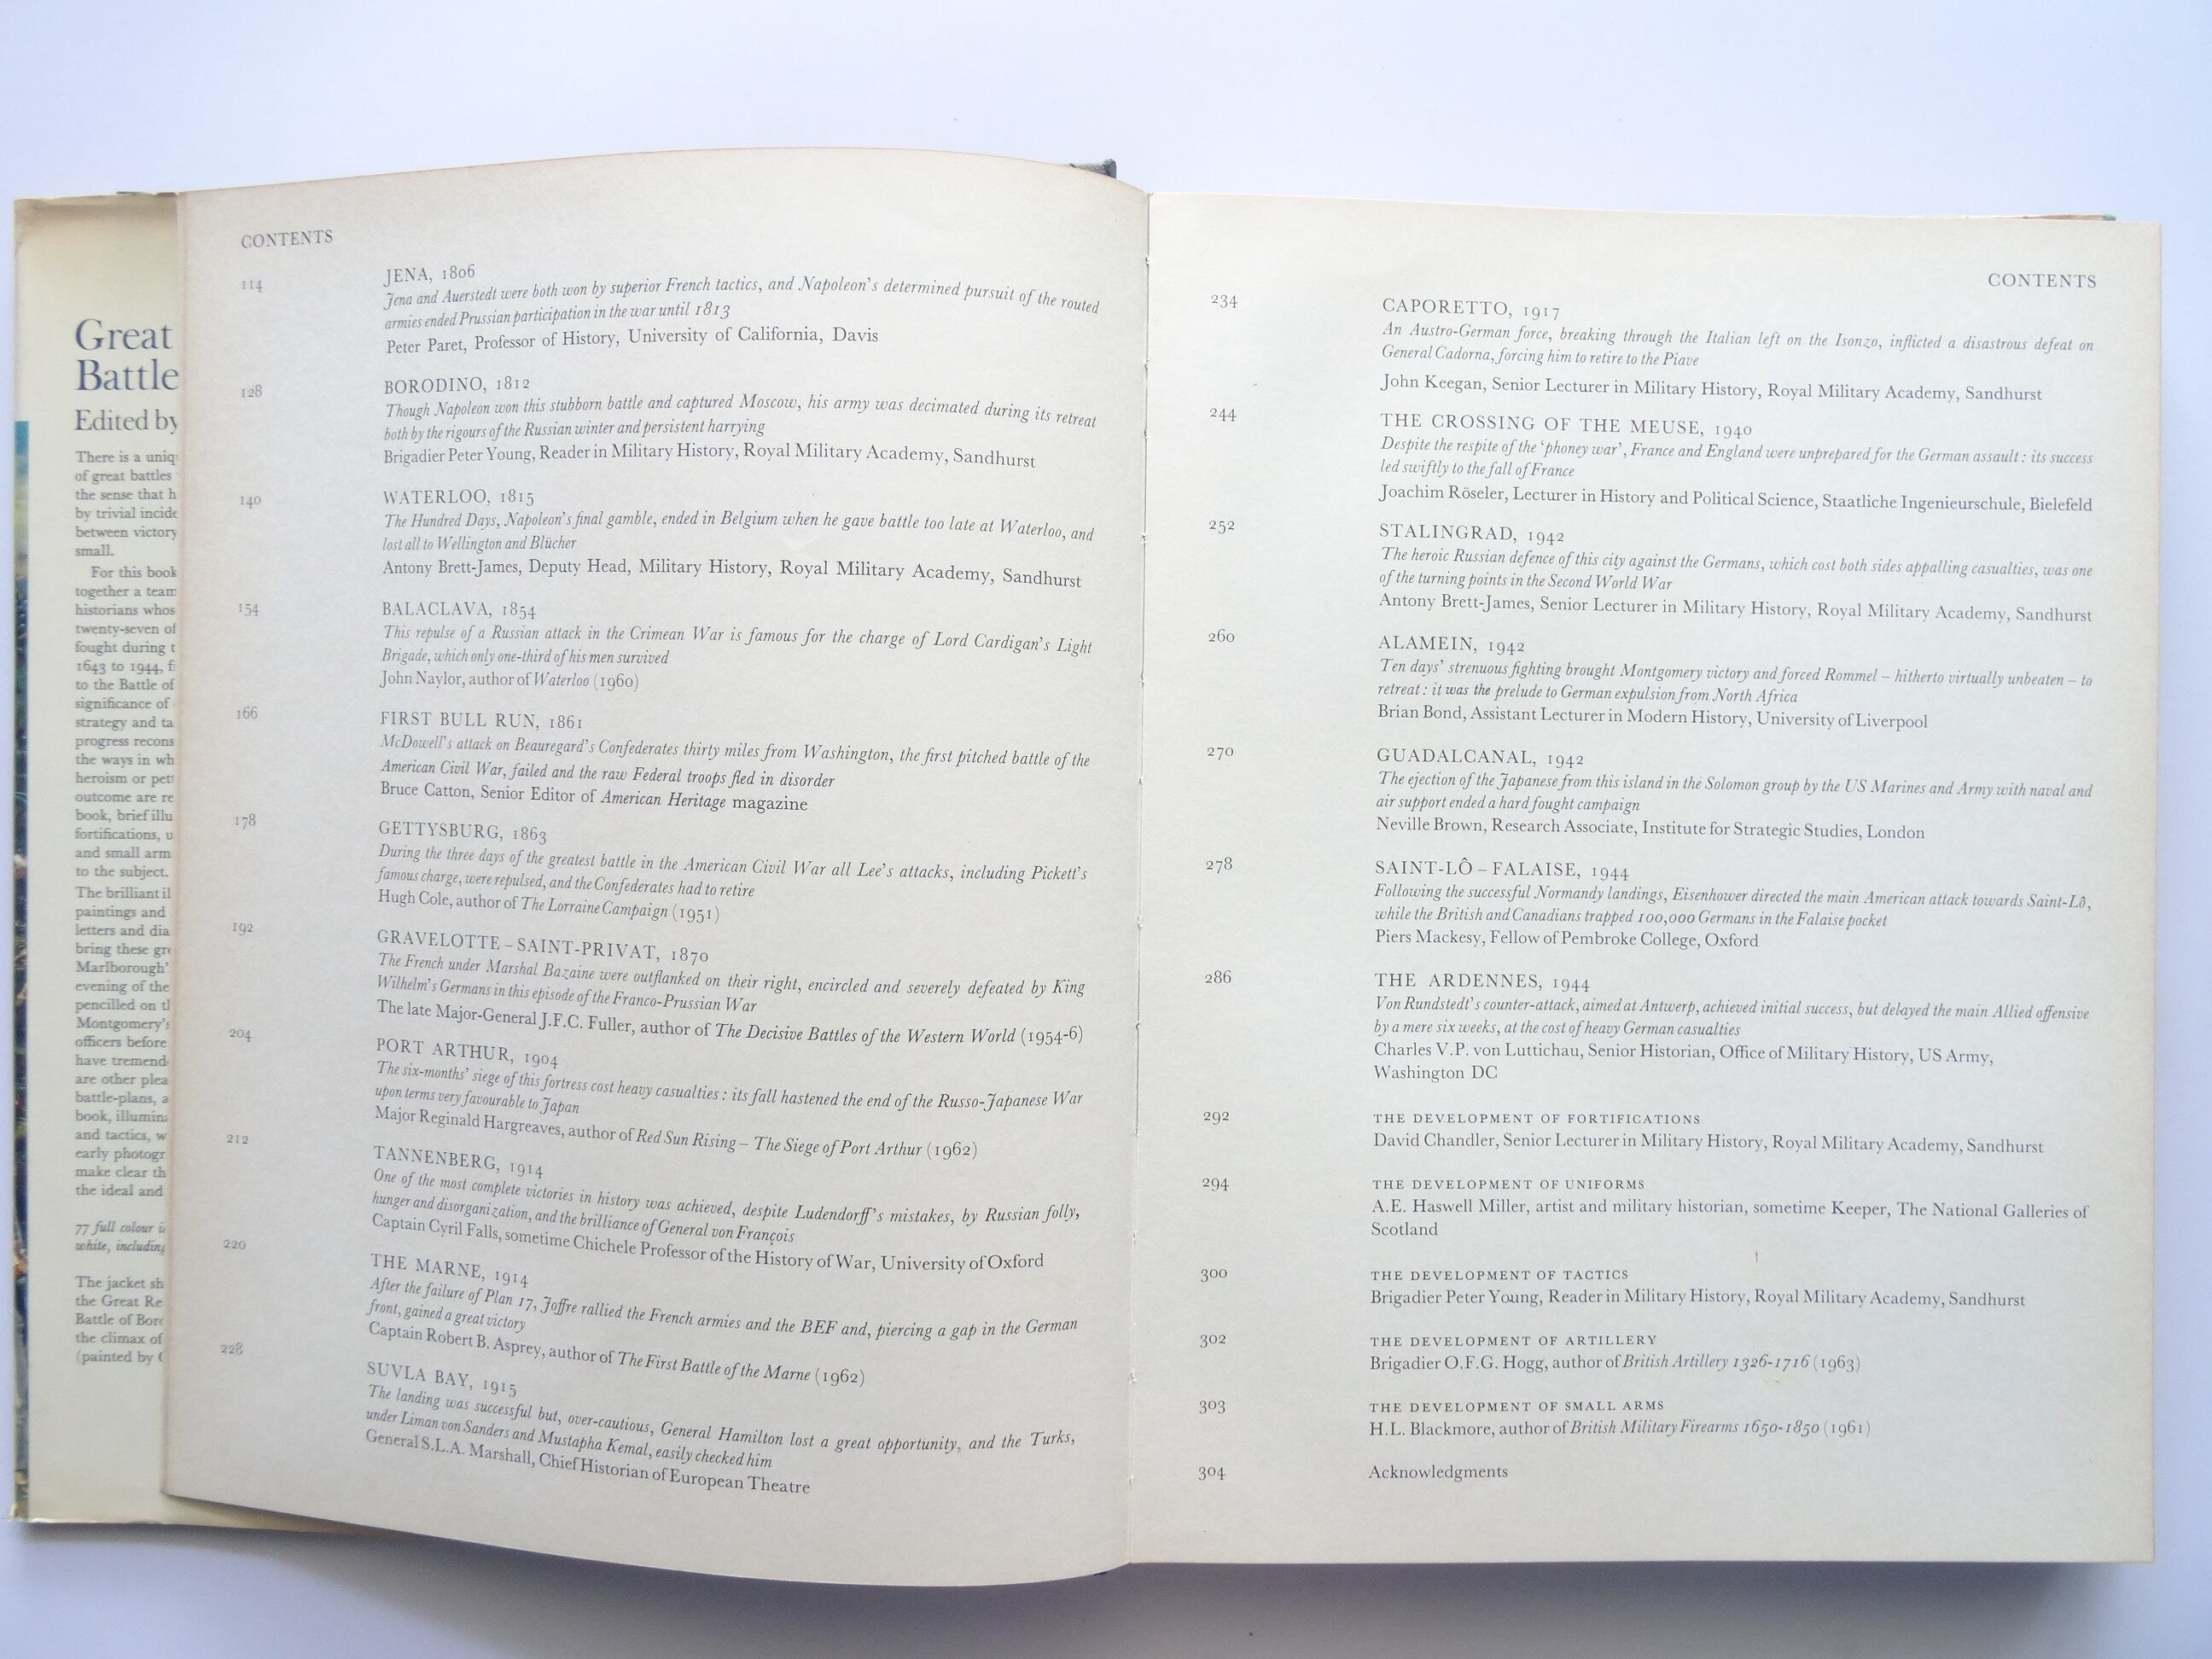 Great
Battle
Edited by
There is a uniq
of great battles
the sense that h
by trivial incide
between victory
small.
For this book
together a team
historians whos
twenty-seven of
fought during t
1643 to 1944, f
to the Battle of
significance of
strategy and ta
progress recons
the ways in wh
heroism or pet
outcome are re
book, brief illu
fortifications, u
and small arm
to the subject.
The brilliant il
paintings and
letters and dia
bring these gre
Marlborough'
evening of the
pencilled on t
Montgomery's
officers before
have tremend
are other plea
battle-plans, a
book, illumina
and tactics, w
early photogr
make clear th
the ideal and
77 full colour i
white, including
The jacket sh
the Great Re
Battle of Boro
the climax of
(painted by
CONTENTS
114
JENA, 1806
Jena and Auerstedt were both won by superior French tactics, and Napoleon's determined pursuit of the routed
armies ended Prussian participation in the war until 1813
Peter Paret, Professor of History, University of California, Davis
128
BORODINO, 1812
Though Napoleon won this stubborn battle and captured Moscow, his army was decimated during its retreat
both by the rigours of the Russian winter and persistent harrying
Brigadier Peter Young, Reader in Military History, Royal Military Academy, Sandhurst
140
WATERLOO, 1815
The Hundred Days, Napoleon's final gamble, ended in Belgium when he gave battle too late at Waterloo, and
lost all to Wellington and Blücher
Antony Brett-James, Deputy Head, Military History, Royal Military Academy, Sandhurst
154
BALACLAVA, 1854
This repulse of a Russian attack in the Crimean War is famous for the charge of Lord Cardigan's Light
Brigade, which only one-third of his men survived
John Naylor, author of Waterloo (1960)
166
FIRST BULL RUN, 1861
McDowell's attack on Beauregard's Confederates thirty miles from Washington, the first pitched battle of the
American Civil War, failed and the raw Federal troops fled in disorder
Bruce Catton, Senior Editor of American Heritage magazine
178
GETTYSBURG, 1863
During the three days of the greatest battle in the American Civil War all Lee's attacks, including Pickett's
famous charge, were repulsed, and the Confederates had to retire
Hugh Cole, author of The Lorraine Campaign (1951)
192
GRAVELOTTE – SAINT-PRIVAT, 1870
The French under Marshal Bazaine were outflanked on their right, encircled and severely defeated by King
Wilhelm's Germans in this episode of the Franco-Prussian War
The late Major-General J.F.C. Fuller, author of The Decisive Battles of the Western World (1954-6)
204
PORT ARTHUR, 1904
The six-months' siege of this fortress cost heavy casualties : its fall hastened the end of the Russo-Japanese War
upon terms very favourable to Japan
Major Reginald Hargreaves, author of Red Sun Rising – The Siege of Port Arthur (1962)
212
TANNENBERG, 1914
One of the most complete victories in history was achieved, despite Ludendorff's mistakes, by Russian folly,
hunger and disorganization, and the brilliance of General von François
Captain Cyril Falls, sometime Chichele Professor of the History of War, University of Oxford
220
THE MARNE, 1914
After the failure of Plan 17, Joffre rallied the French armies and the BEF and, piercing a gap in the German
front, gained a great victory
Captain Robert B. Asprey, author of The First Battle of the Marne (1962)
228
SUVLA BAY, 1915
The landing was successful but, over-cautious, General Hamilton lost a great opportunity, and the Turks,
under Liman von Sanders and Mustapha Kemal, easily checked him
General S.L.A. Marshall, Chief Historian of European Theatre
CONTENTS
234
CAPORETTO, 1917
An Austro-German force, breaking through the Italian left on the Isonzo, inflicted a disastrous defeat on
General Cadorna, forcing him to retire to the Piave
John Keegan, Senior Lecturer in Military History, Royal Military Academy, Sandhurst
244
THE CROSSING OF THE MEUSE, 1940
Despite the respite of the 'phoney war', France and England were unprepared for the German assault : its success
led swiftly to the fall of France
Joachim Röseler, Lecturer in History and Political Science, Staatliche Ingenieurschule, Bielefeld
252
STALINGRAD, 1942
The heroic Russian defence of this city against the Germans, which cost both sides appalling casualties, was one
of the turning points in the Second World War
Antony Brett-James, Senior Lecturer in Military History, Royal Military Academy, Sandhurst
260
ALAMEIN, 1942
Ten days' strenuous fighting brought Montgomery victory and forced Rommel – hitherto virtually unbeaten – to
retreat : it was the prelude to German expulsion from North Africa
Brian Bond, Assistant Lecturer in Modern History, University of Liverpool
270
GUADALCANAL, 1942
The ejection of the Japanese from this island in the Solomon group by the US Marines and Army with naval and
air support ended a hard fought campaign
Neville Brown, Research Associate, Institute for Strategic Studies, London
278
SAINT-LÔ – FALAISE, 1944
Following the successful Normandy landings, Eisenhower directed the main American attack towards Saint-Lô,
while the British and Canadians trapped 100,000 Germans in the Falaise pocket
Piers Mackesy, Fellow of Pembroke College, Oxford
286
THE ARDENNES, 1944
Von Rundstedt's counter-attack, aimed at Antwerp, achieved initial success, but delayed the main Allied offensive
by a mere six weeks, at the cost of heavy German casualties
Charles V.P. von Luttichau, Senior Historian, Office of Military History, US Army,
Washington DC
292
THE DEVELOPMENT OF FORTIFICATIONS
David Chandler, Senior Lecturer in Military History, Royal Military Academy, Sandhurst
294
THE DEVELOPMENT OF UNIFORMS
A.E. Haswell Miller, artist and military historian, sometime Keeper, The National Galleries of
Scotland
300
THE DEVELOPMENT OF TACTICS
Brigadier Peter Young, Reader in Military History, Royal Military Academy, Sandhurst
302
THE DEVELOPMENT OF ARTILLERY
Brigadier O.F.G. Hogg, author of British Artillery 1326-1716 (1963)
303
THE DEVELOPMENT OF SMALL ARMS
H.L. Blackmore, author of British Military Firearms 1650-1850 (1961)
304
Acknowledgments